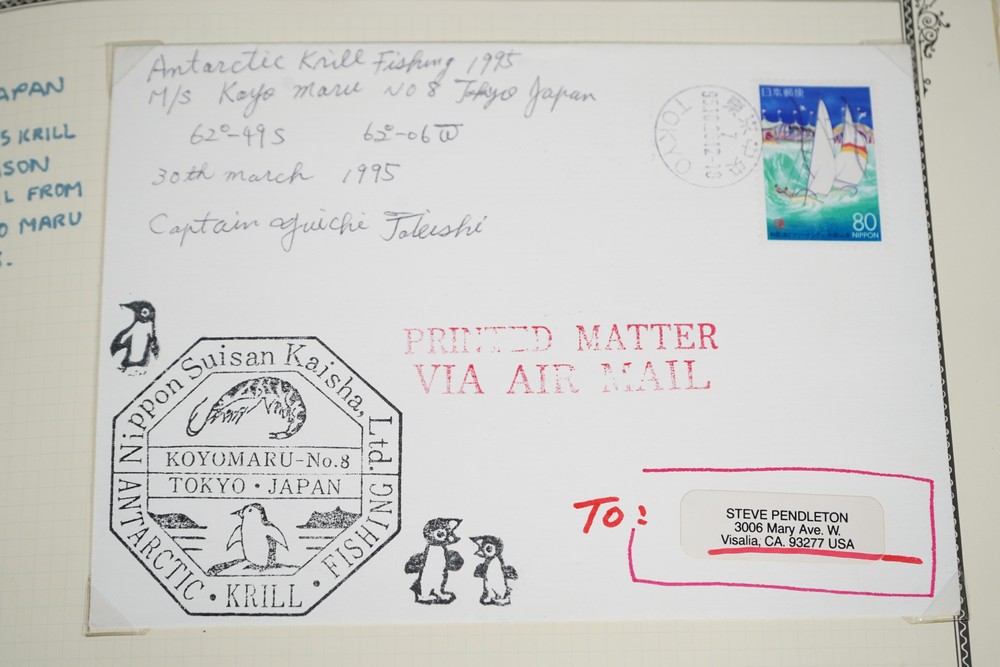 APAN
S KRILL
SON
L FROM
O MARU
Antarctic Krill Fishing 1995
M/S Koyo maru NO 8 Tokyo Japan
62°-49S 62°-06W
30th march 1995
Captain
日本郵便
80
NIPPON
TOKYO
PRINTED MATTER
VIA AIR MAIL
Nippon Suisan Kaisha, Ltd.
KOYOMARU-No.8
TOKYO・JAPAN
ANTARCTIC・KRILL・FISHING
To:
STEVE PENDLETON
3006 Mary Ave. W.
Visalia, CA. 93277 USA